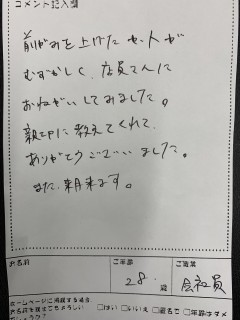 コメント記入欄
前がみを上げたセットが
むずかしく、店員さんに
おねがいしてみました。
親切に教えてくれて、
ありがとうございました。
また、来ます。
お名前
ご年齢
28 歳
ご職業
会社員
ホームページに掲載する場合、
お名前を載せてもよろしい
でしょうか？
□はい □いいえ □匿名で □年齢はダメ